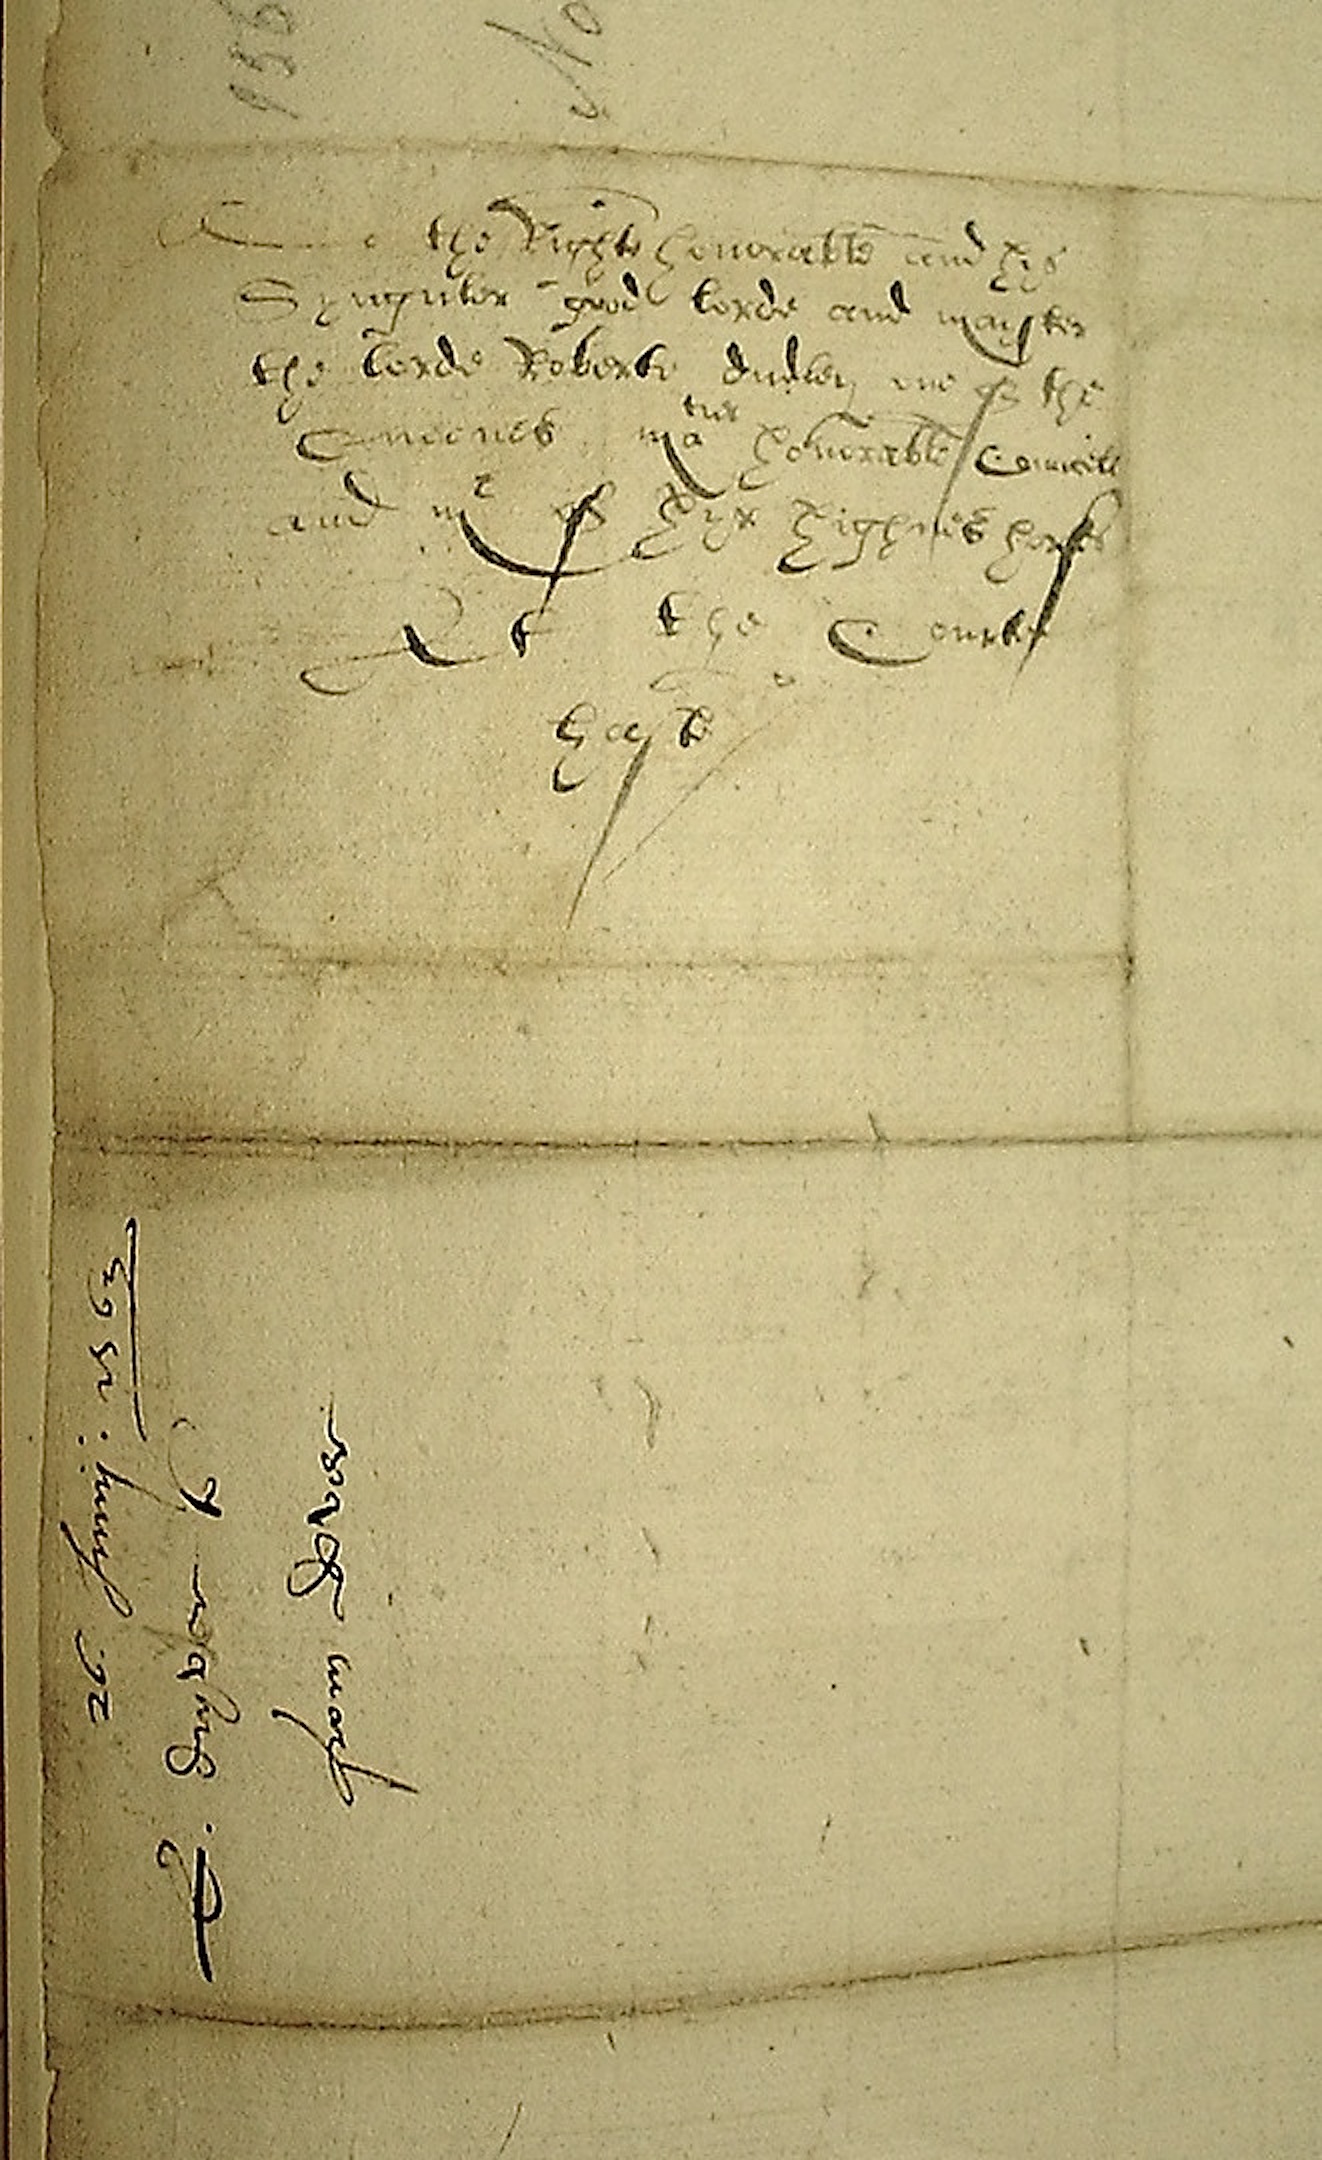 To the Right honorable and hys
Synguler good lorde and mayster
the lorde Roberte dudley one of the
Queenes ma^ties honorable Councell
and m^r of hyr highnes horses
At the Courte
hast
26 Junij: 1563
from